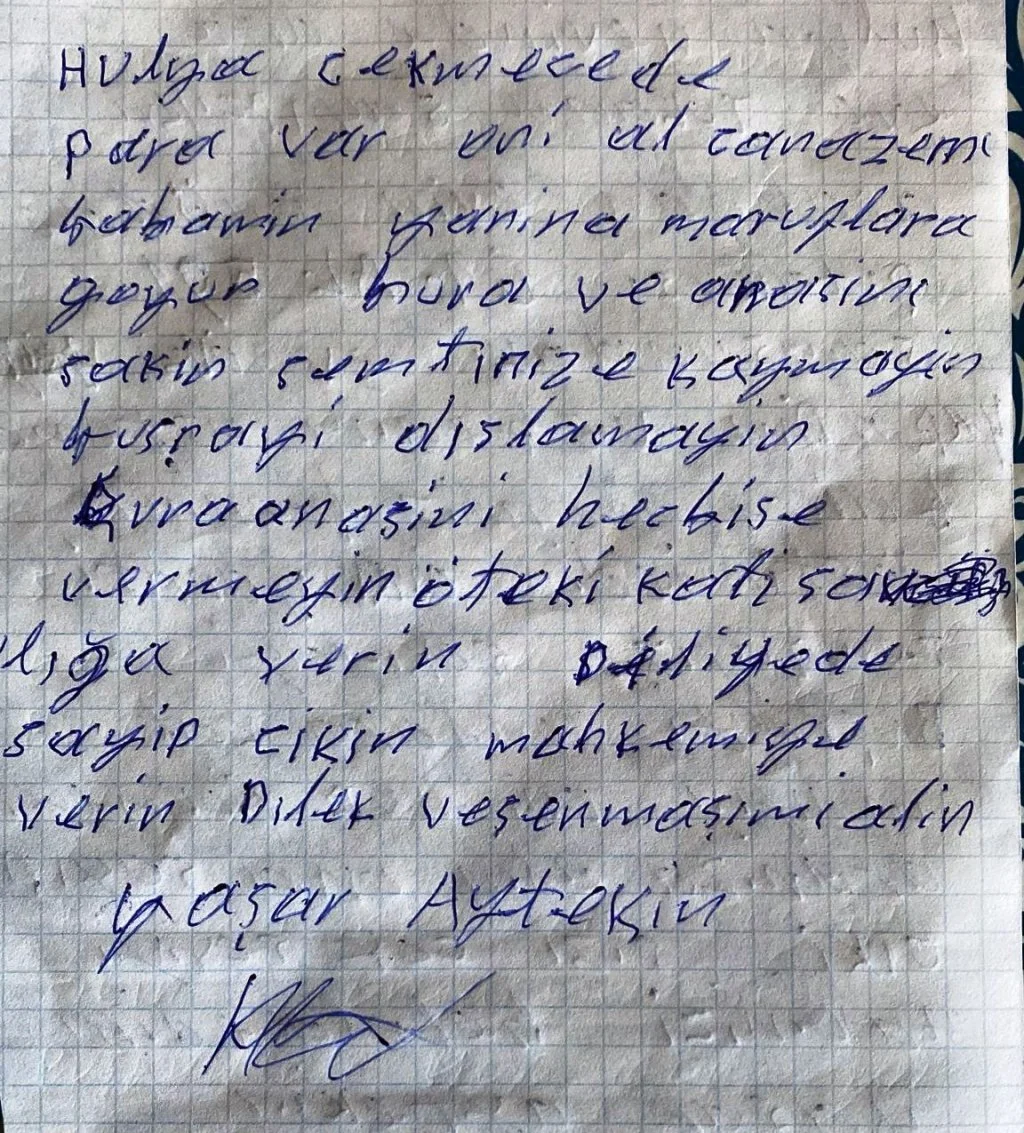 Hulya çekmecede
para var oni al canazemi
babamin yanina maruflara
goyun bura ve anaşini
sakin semtinize kaymayin
buşrayi dışlamayin
Buraanaşini hecbişe
vermeyin öteki kati sav
lığa verin Deliyede
sayip cikin mahkemiye
verin Dilek veşenmaşimi alin
yaşar Aytekin